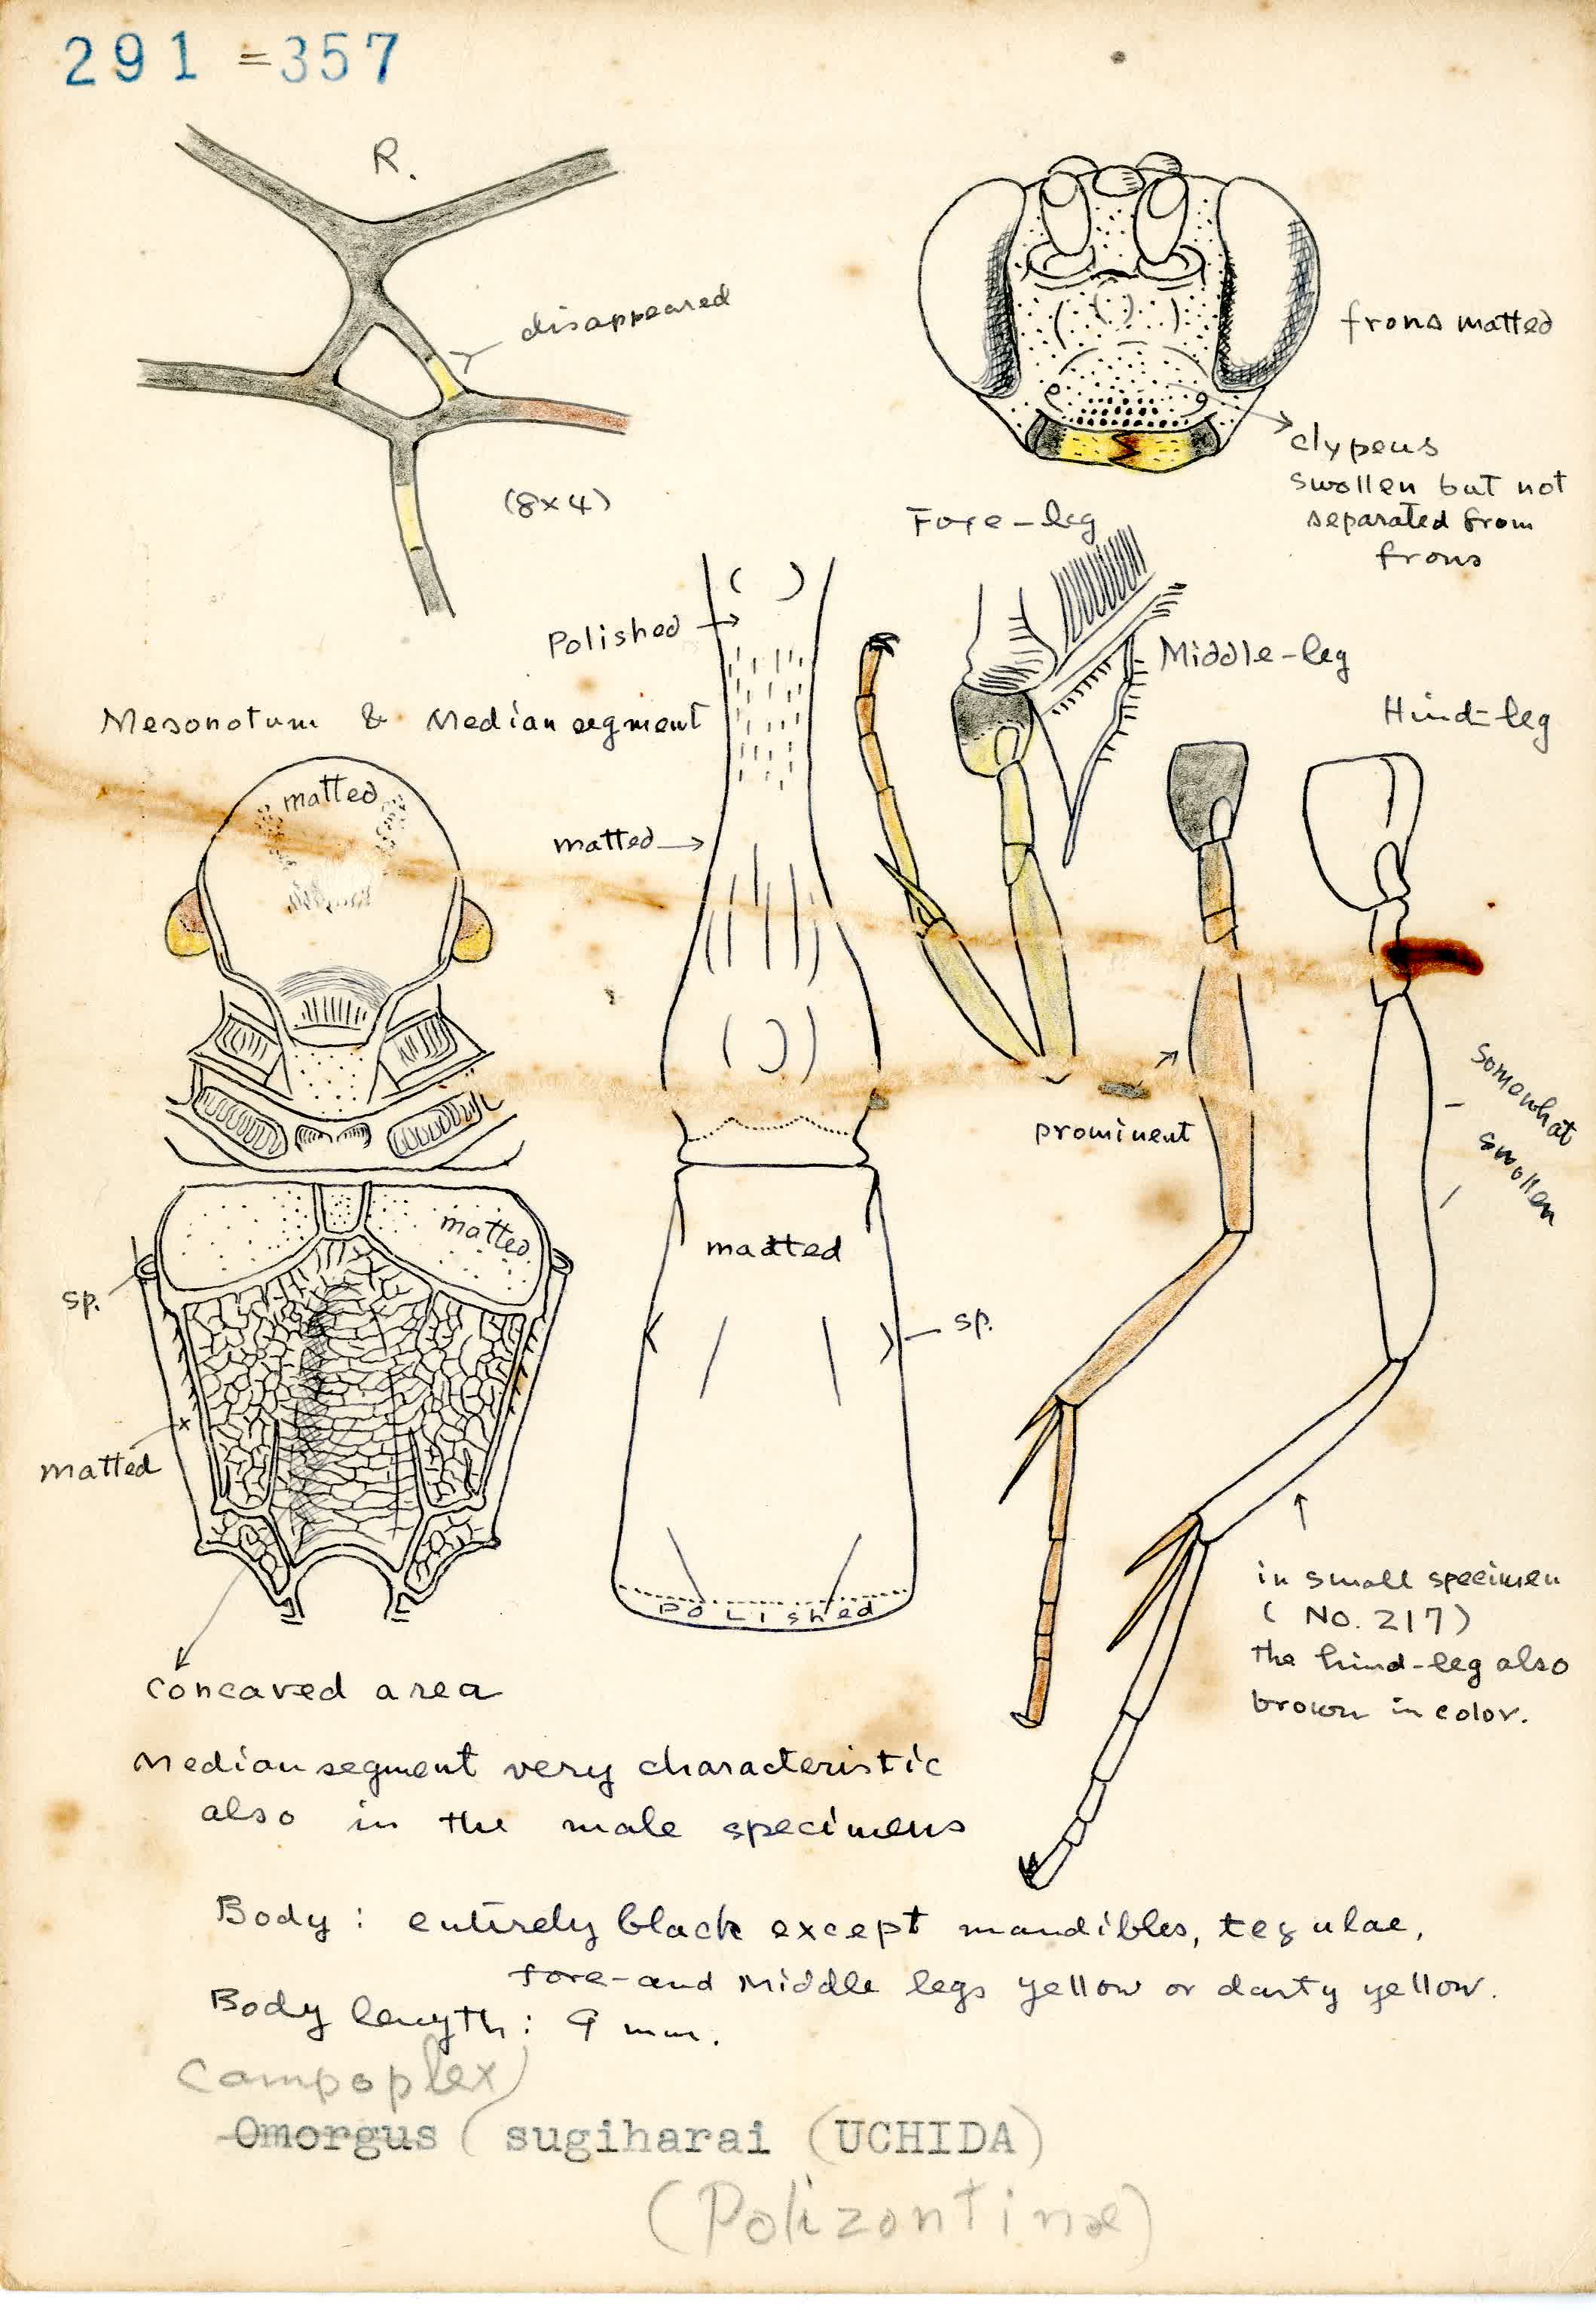 291 = 357
R.
disappeared
(8×4)
frons matted
clypeus
swollen but not
separated from
frons
Fore-leg
Polished
Middle-leg
Hind-leg
Mesonotum & Median segment
matted
matted
prominent
somewhat
swollen
matted
sp.
madted
sp.
matted
polished
in small specimen
(No. 217)
the hind-leg also
brown in color.
concaved area
Median segment very characteristic
also in the male specimens
Body: entirely black except mandibles, tegulae,
fore-and Middle legs yellow or darty yellow.
Body length: 9 mm.
Campoplex)
Omorgus (sugiharai (UCHIDA)
(Polizontinæ)